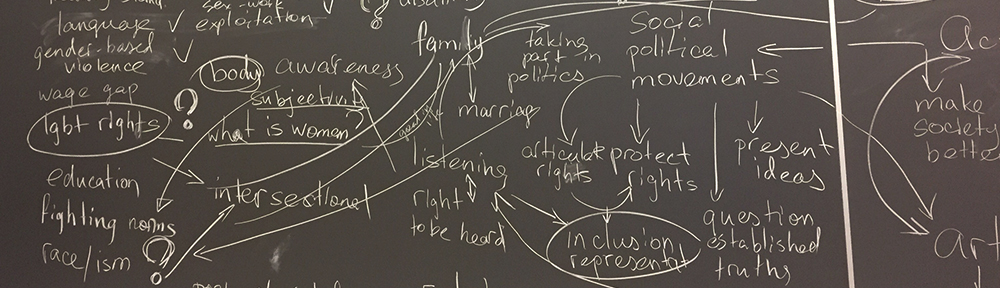 sex-work
language
exploitation
gender-based
violence
wage gap
lgbt rights
?
education
fighting norms
race/ism
?
body awareness
subjectivity
what is woman?
intersectional
family
taking
part in
politics
marriage
listening
right
to be heard
social
political
movements
articulate
rights
protect
rights
present
ideas
inclusion
representat
question
established
truths
Ac
make
society
bette
art